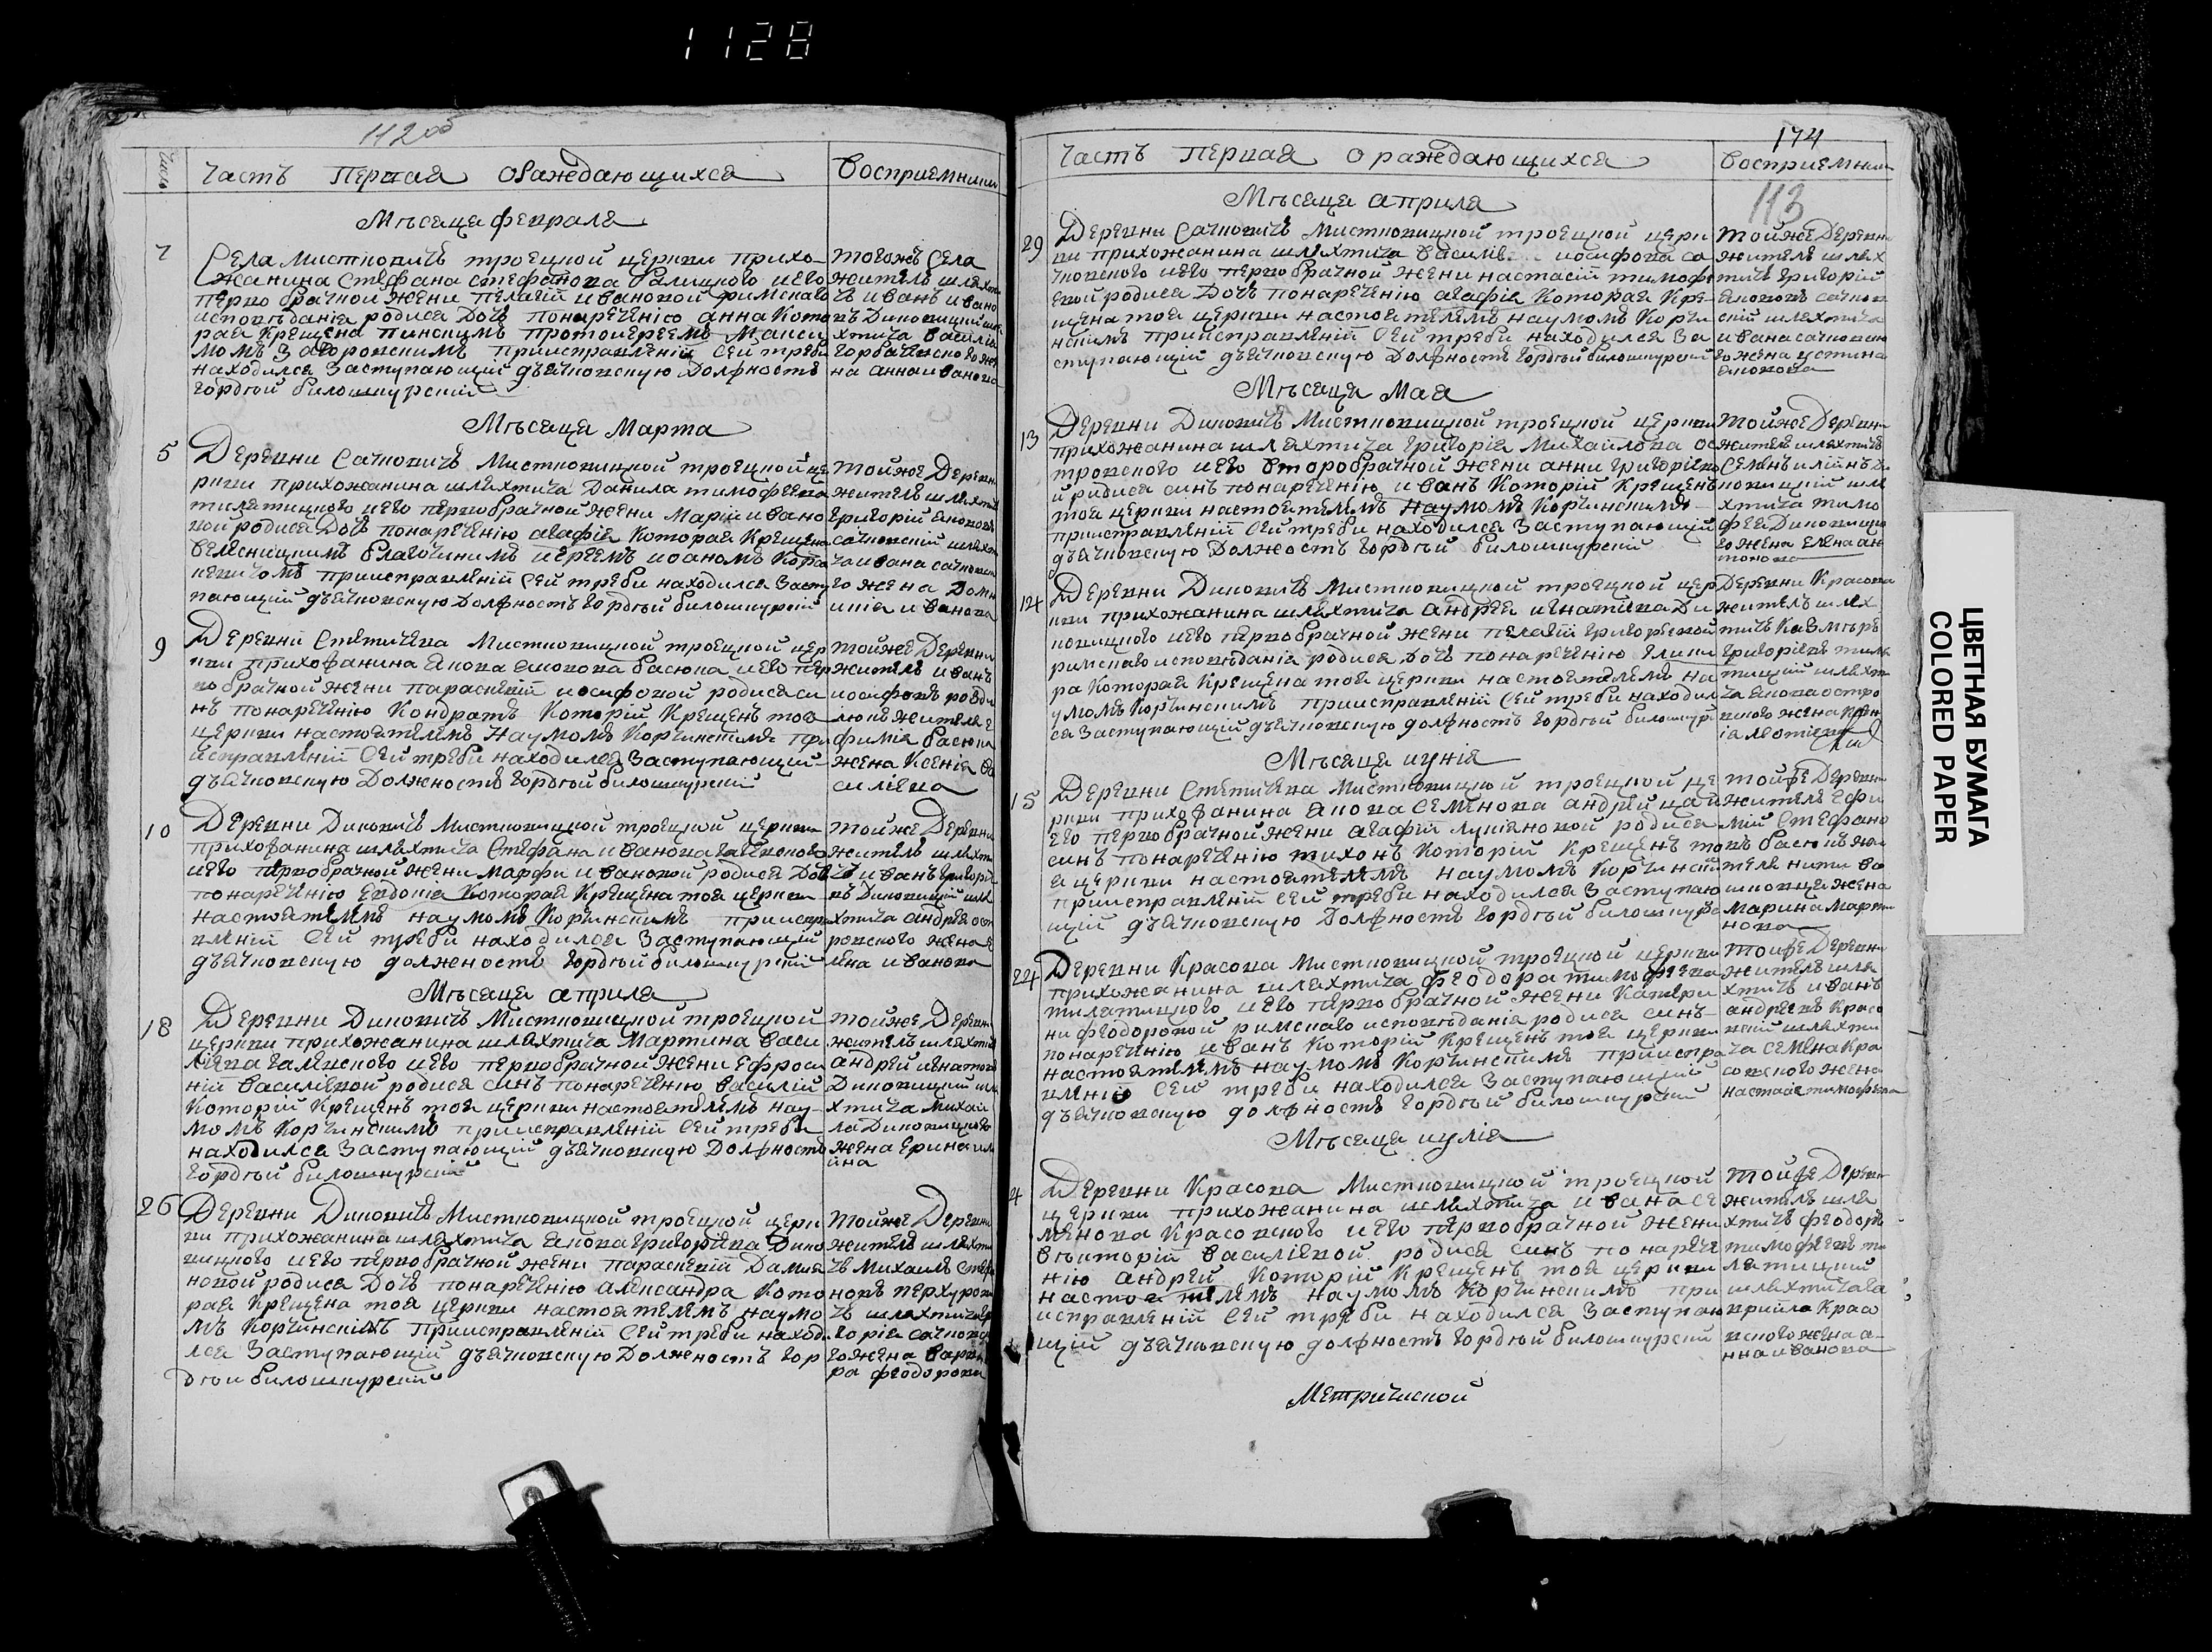 1128
112 об
Число
Часть Первая О Раждающихся
Восприемники
Мѣсяца февраля
7
Села Мистковичъ троецкой церкви прихо-
жанина Стефана стефанова и его
перво брачной жени пелагій ивановой римскаго
исповѣданія родися дочъ понареченію анна кото
рая крещена пинскимъ протоиереемъ Макси
момъ Заворовскимъ приисправленій сей треби
находился Заступающій дъячковскую Должность
гордѣй билошкурскій
тогожъ Села
житель шляхти
чъ иванъ ивано
въ Диковицкій шля
хтича василія
жe
на анна иванова
Мѣсяца Марта
5
Деревни Сачковичъ Мистковицкой троецкой це
ркви прихожанина шляхтича Данила тимофеева
тилятицкого иего первобрачной жени Маріи ивано
вой родися Дочъ понареченію агафія Которая Крещена
благочиннимъ иереемъ иоаномъ
приисправленій Сей треби находился засту
пающій дъячковскую Должность гордѣй билошкурскій
тойже Деревни
житель шляхтичъ
григорій яковъ
сачковский шляхт
ча ивана сачковск
го жена Домн
икія иванова
9
Деревни Стетичева Мистковицкой троецкой цер
кви прихожанина Якова Яковова басюка иего пер
во брачной жени параскевій иосифовой родися си
нъ понареченію Кондратъ Которій Крещенъ тоя
церкви настоятелемъ Наумомъ Корчинскимъ при
исправленій Сей треби находился Заступающій
дъячковскую Должность гордѣй билошкурскій
тойже Деревни
житель иванъ
иосифовъ
житель е
фимія басюка
жена Ксенія ва
силіева
10
Деревни Диковичъ Мистковицкой троецкой церкви
прихожанина шляхтича Стефана иванова
иего первобрачной жени Марфи ивановой родися Дочъ
понареченію Евдокія Которая Крещена тоя церкви
настоятелемъ наумомъ Корчинскимъ приисправ
вленій Сей треби находился Заступающій
дъячковскую должность гордѣй билошкурскій
тойже Деревни
житель шляхти
чъ иванъ григоріе
въ Диковицкій шля
хтича андрея ост
ровского жена е
лена иванова
Мѣсяца априля
18
Деревни Диковичъ Мистковицкой троецкой
церкви прихожанина шляхтича Мартина Васи
ліева иего первобрачной жени Ефроси
ній василіевой родися синъ понареченію василій
Которій Крещенъ тоя церкви настоятелемъ нау-
момъ Корчинскимъ приисправленій Сей треби
находился Заступающій дъячковскую Должность
гордѣй билошкурскій
тойже Деревни
житель шляхтичъ
андрей игнатовъ
Диковицкій шля
хтича Михаи
ла Диковицкого
жена Ерина
26
Деревни Диковичъ Мистковицкой троецкой церк
ви прихожанина шляхтича Якова григоріева Дико
вицкого иего первобрачной жени параскевій Дамія
новой родися Дочъ понареченію александра Кото
рая Крещена тоя церкви настоятелемъ наумо
мъ Корчинскимъ Приисправленій Сей треби находи
лся Заступающій дъячковскую Должность гор
дѣй билошкурскій
тойже Деревни
житель шляхти
чъ Михаилъ
шляхтича гри
горія сачковск
го жена варва
ра феодорова
174
113
Часть Первая О раждающихся
Восприемники
Мѣсяца априля
29
Деревни Сачковичъ Мистковицкой троецкой церк
ви прихожанина шляхтича василія иосифова са
чковского иего первобрачной жени настасій тимофе
евой родися Дочъ понареченію агафія Которая Кре-
щена тоя церкви настоятелемъ наумомъ Корчи
нскимъ приисправленій Сей треби находился За
ступающій дъячковскую Должность гордѣй билошкурскій
тойже Деревни
житель шлях
тичъ григорій
яковъ сачков
скій шляхтича
ивана сачковско
го жена устина
яковова
Мѣсяца Мая
13
Деревни Диковичъ Мистковицкой троецкой церкви
прихожанина шляхтича григорія Михайлова ос
тровского иего второбрачной жени анни григоріево
й родися синъ понареченію иванъ Которій Крещенъ
тоя церкви настоятелемъ Наумомъ Корчинскимъ
приисправленій Сей треби находился Заступающій
дъячковскую Должность гордѣй билошкурскій
тойже Деревни
житель шляхтичъ
Семенъ илійнъ Ди
ковицкій шля
хтича тимо
фея Диковицко
го жена елена ан
тонова
14
Деревни Диковичъ Мистковицкой троецкой цер
кви прихожанина шляхтича андрея игнатіева Ди
ковицкого иего первобрачной жени пелагій григоревой
римскаго исповѣданія родися дочъ понареченію глики
ра Которая Крещена тоя церкви настоятелемъ На
умомъ Корчинскимъ приисправленій Сей треби находил
ся Заступающій дъячковскую должность гордѣй билошкурс
Деревни Красова
житель шлях
тичъ Казмѣръ
григоріевъ тиля
тицкій шляхт
ча якова остро
вского жена
Мѣсяца иунія
15
Деревни Стетичева Мистковицкой троецкой це
ркви прихожанина Якова Семенова
его первобрачной жени агафій лукіяновой родися
синъ понареченію тихонъ Которій Крещенъ то
я церкви настоятелемъ наумомъ Корчинским
приисправленій Сей треби находился Заступаю
щій дъячковскую Должность гордѣй билошкурс
тойже Деревни
житель ефи
мій Стефано
въ басюкъ жи
теля
жена
марина марти
нова
24
Деревни Красова Мистковицкой троецкой церкви
прихожанина шляхтича Феодора тимофеева
тилятицкого иего первобрачной жени Катери
ни феодоровой римскаго исповѣданія родися синъ
понареченію иванъ Которій Крещенъ тоя церкви
настоятелемъ наумомъ Корчинскимъ приисправ
вленію Сей треби находился Заступающій
дъячковскую должность гордѣй билошкурскій
тойже Деревни
житель шля
хтичъ иванъ
андреевъ Красо
вскій шляхти
ча семена Кра
совского жена
настася тимофеева
Мѣсяца иулія
4
Деревни Красова Мистковицкой троецкой
церкви прихожанина шляхтича ивана Се
менова Красовского иего первобрачной жени
викторій василіевой родися синъ по нарече
нію андрей Которій Крещенъ тоя церкви
настоятелемъ наумомъ Корчинскимъ при
исправленій Сей треби находился Заступаю
щій дъячковскую должность гордѣй билошкурскій
тойже Деревни
житель шля
хтичъ феодоръ
тимофеевъ ти
лятицкій
шляхтича га
вриила Красо
вского жена а-
нна иванова
Метрической
ЦВЕТНАЯ БУМАГА
COLORED PAPER